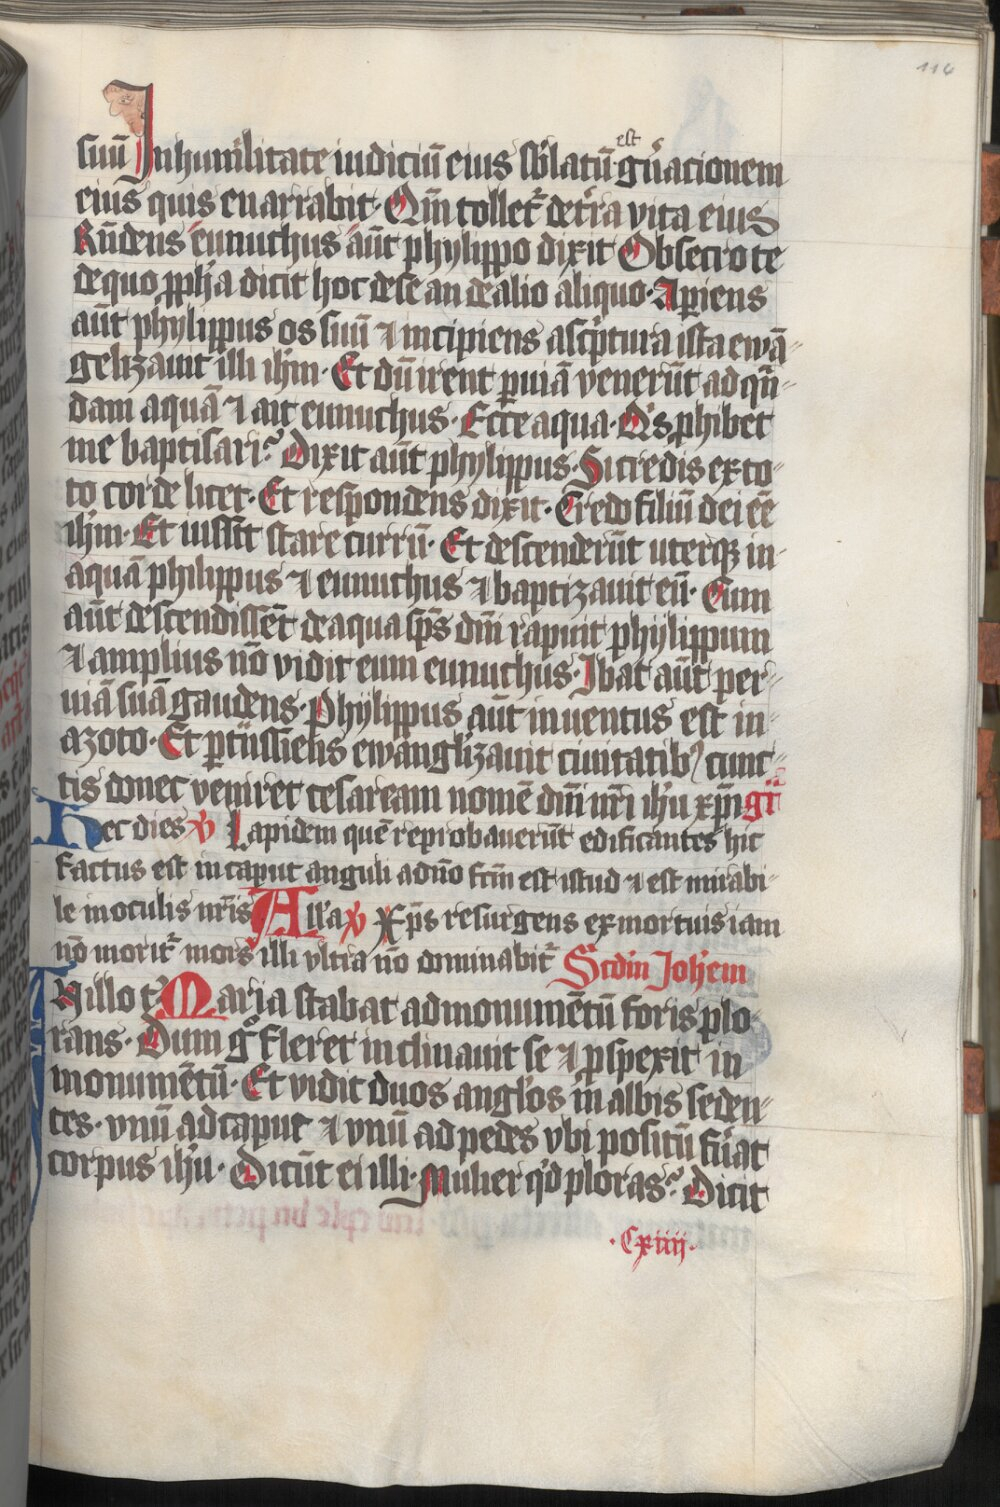 116
suū In humilitate iudiciū eius sb̄latū est gn̄acionem
eius quis enarrabit· Qm̄ tollet᷑ de tr̄ra vita eius
Rn̄dens eunuchus aūt phylippo dixit Obsecro te
de quo ꝓph̄a dicit hoc de se an de alio aliquo· Apiens
aūt phylippus os suū ⁊ incipiens a sc̄ptura ista ewā-
gelizauit illi ih̄m· Et dū irent p uiā venerūt ad qn̄-
dam aquā ⁊ ait eunuchus· Ecce aqua· Qͥs ꝓhibet
me baptisari? Dixit aūt phylippus· Si credis ex to-
to corde licet· Et respondens dixit· Credo filiū dei eē
ih̄m· Et iussit stare currū· Et descenderūt uterqꝫ in-
aquā philippus ⁊ eunuchus ⁊ baptizauit eū· Cum
aūt descendissēt de aqua sp̄s dn̄i rapuit phylippum
⁊ amplius nō vidit eum eunuchus· Ibat aūt per-
uiā suā gaudens· Phylippus aūt inuentus est in-
azoto· Et ptn̄ssiens ewangl̄izauit ciuitatibꝫ cunc-
tis donec veniret cesaream nomē dn̄i nr̄i ih̄u xp̄i gr̄
Hec dies v Lapidem quē reprobauerūt edificantes hic
factus est in caput anguli a dn̄o fcm̄ est istud ⁊ est mirabi-
le in oculis nr̄is All̄a v Xp̄s resurgens ex mortuis iam
nō morit᷑ mors illi vltra nō dominabit᷑ Scdm̄ Joh̄em
In illo t᷑ Maria stabat ad monumētū foris plo-
rans· Dum gͦ fleret inclinauit se ⁊ ꝓspexit in
monumētū· Et vidit duos angl̄os in albis seden-
tes· vnū ad caput ⁊ vnū ad pedes vbi positū fūat
corpus ih̄u· Dicūt ei illi· Mulier qͥd ploras? Dicit
·Cxiiij·